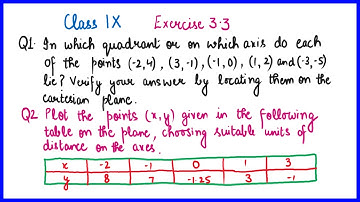 Class IX Exercise 3.3
Q1. In which quadrant or on which axis do each
of the points (-2,4), (3,-1), (-1,0), (1,2) and (-3,-5)
lie? Verify your answer by locating them on the
cartesian plane.
Q2. Plot the points (x,y) given in the following
table on the plane, choosing suitable units of
distance on the axes.
x -2 -1 0 1 3
y 8 7 -1.25 3 -1